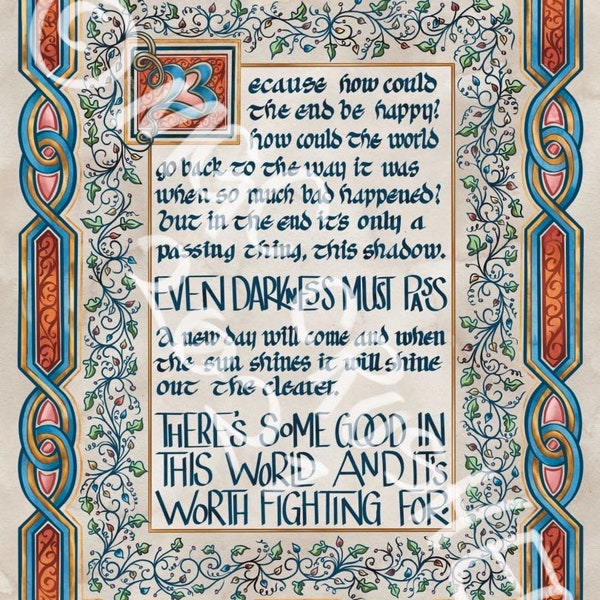 Because how could
the end be happy?
how could the world
go back to the way it was
when so much bad happened?
but in the end it's only a
passing thing, this shadow.
EVEN DARKNESS MUST PASS
A new day will come and when
the sun shines it will shine
out the clearer.
THERE'S SOME GOOD IN
THIS WORLD AND IT'S
WORTH FIGHTING FOR.